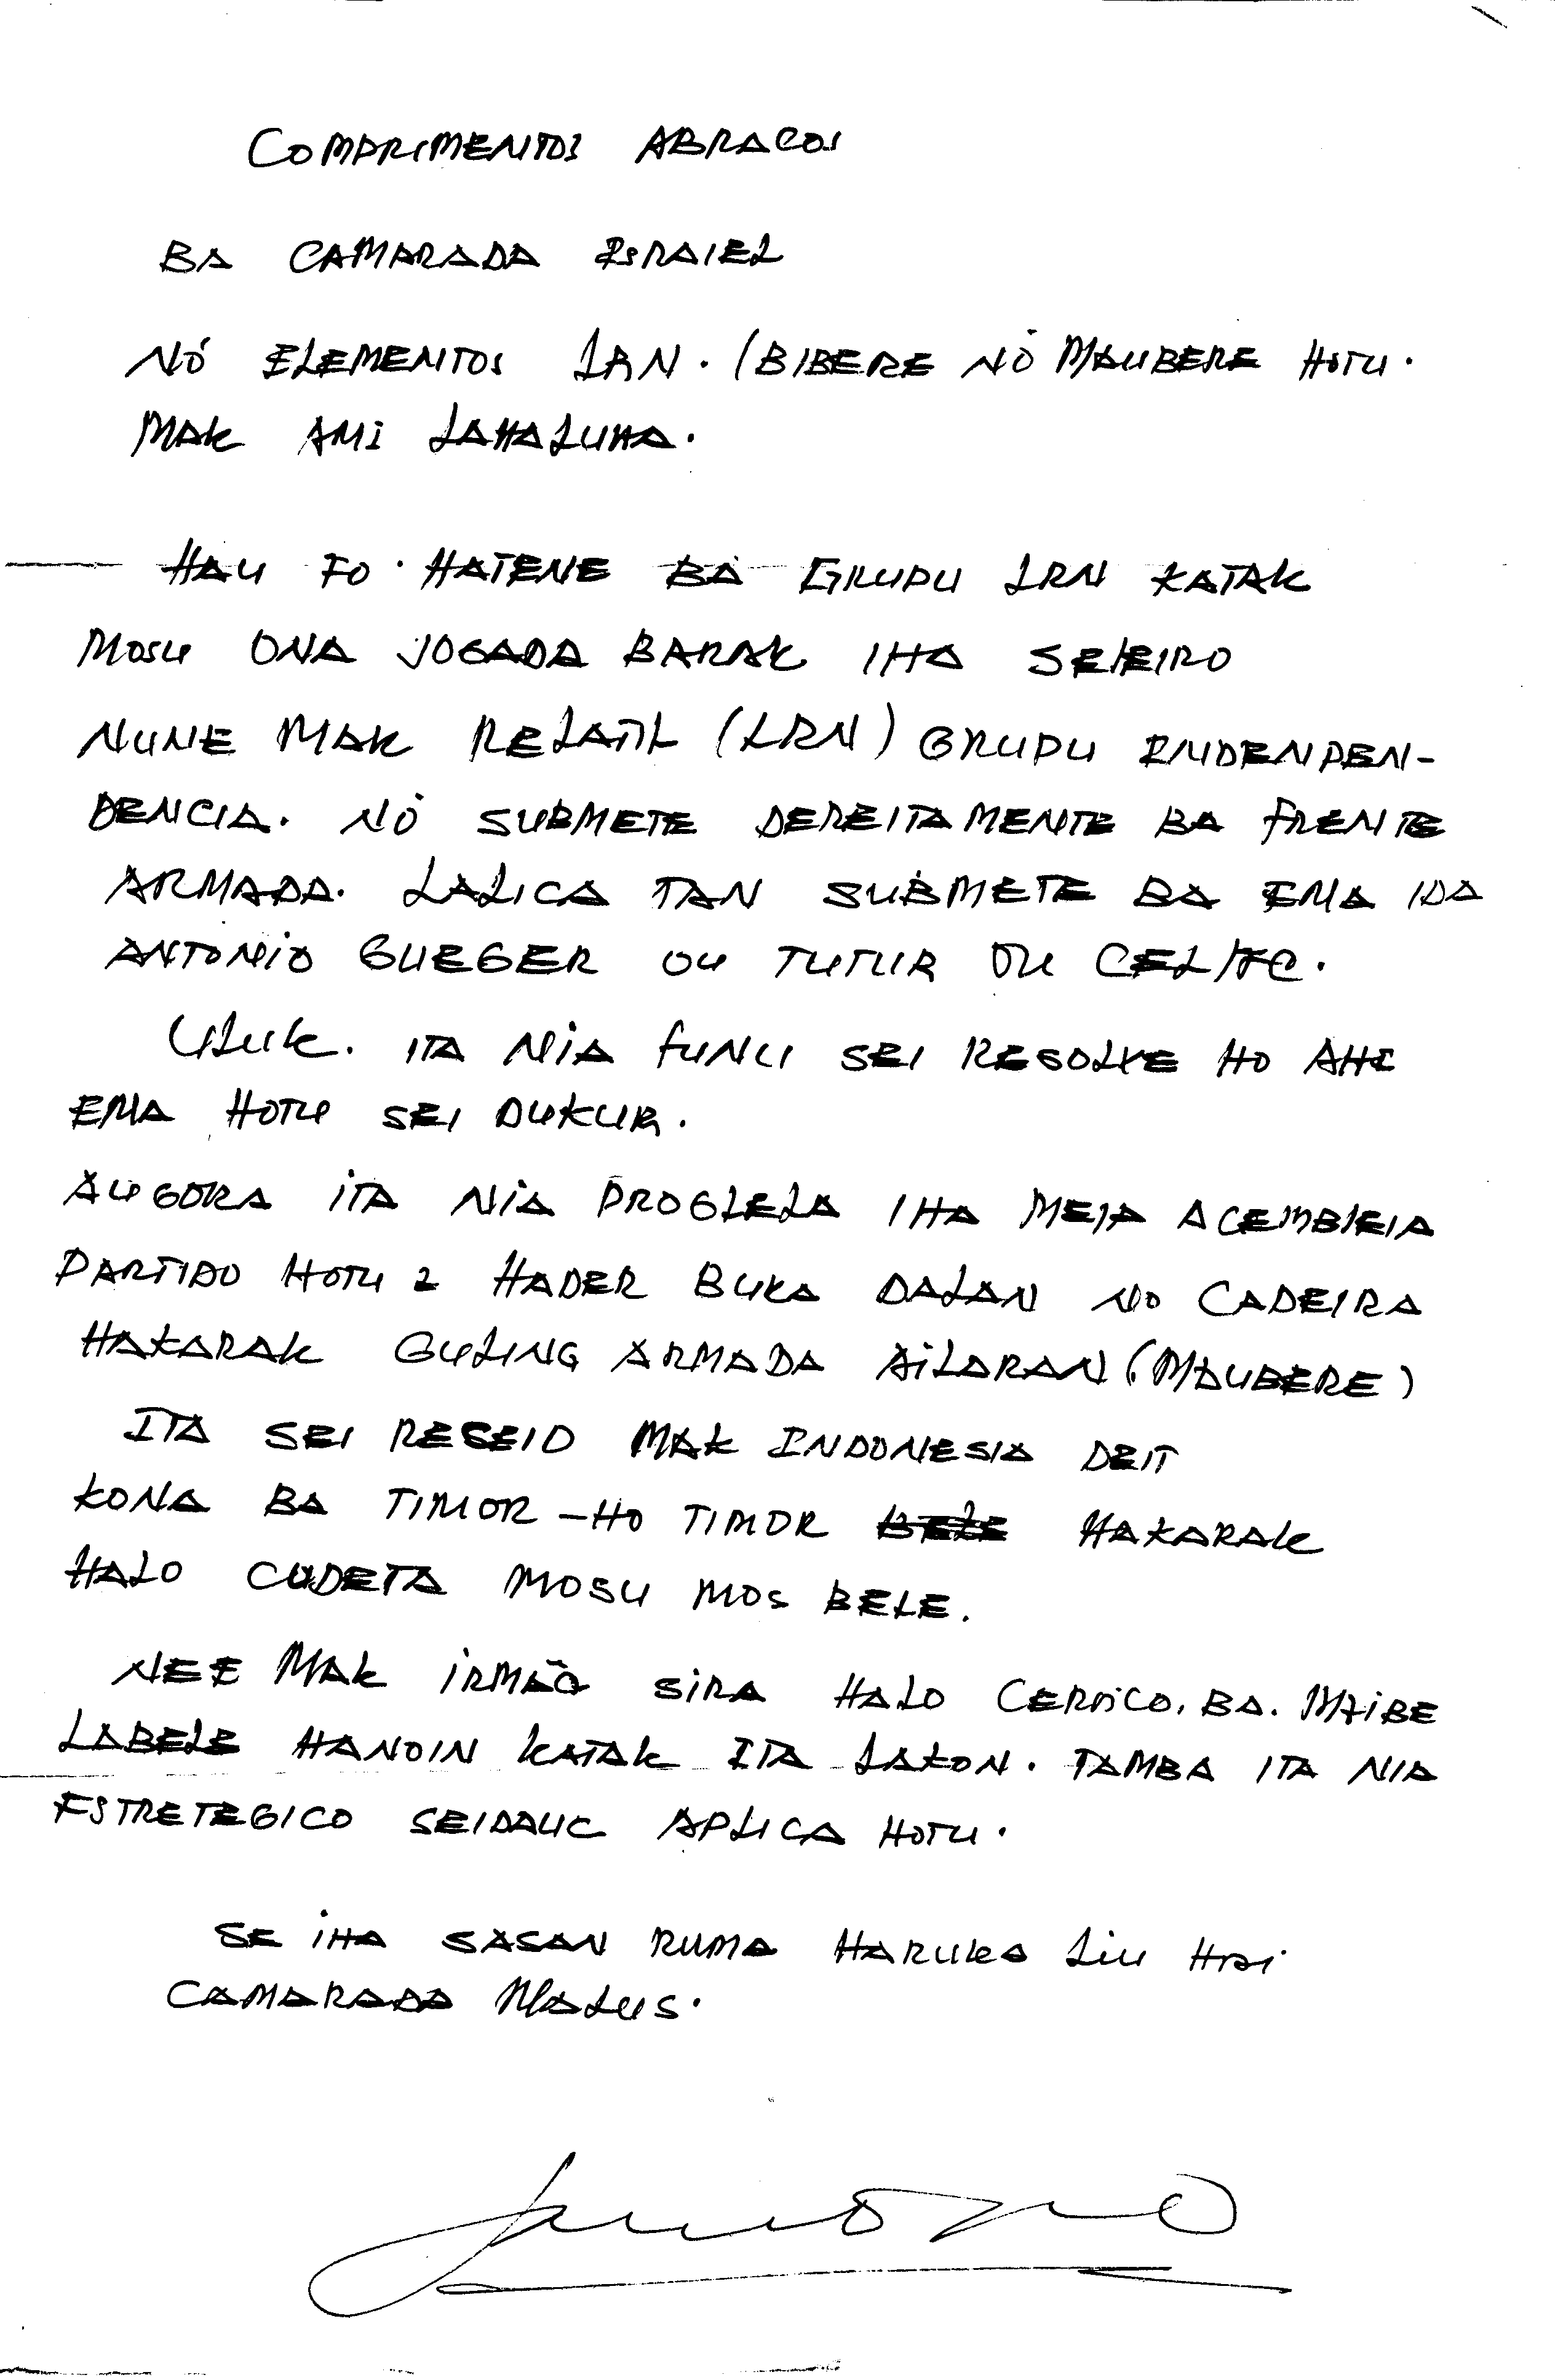 COMPRIMENTOS ABRACOS
BA CAMARADA ISRAIEL
NÓ ELEMENTOS LRN. (BIBERE NÓ MAUBERE HOTU.
MAK AMI LAHALUHA.
HAU FO HATENE BA GRUPU LRN KATAK
MOSU ONA JOGADA BARAK IHA
NUNE MAK (LRN) GRUPU INDENPEN-
DENCIA. NÓ SUBMETE DEREITAMENTE BA FRENTE
ARMADA. LALICA TAN SUBMETE BA EMA IDA
ANTONIO GUEGER OU TUTUR OU
ULUK. ITA NIA FUNCI SEI RESOLVE HO AHI
EMA HOTU SEI DUKUR.
AUGORA ITA NIA PROGLELA IHA MEJA ACEMBLEIA
PARTIDO HOTU 2 HADER BUKA DALAN NO CADEIRA
HAKARAK GULING ARMADA AILARAN (MAUBERE)
ITA SEI RESEIO MAK INDONESIA DEIT
KONA BA TIMOR - HO TIMOR HAKARAK
HALO CUDETA MOSU MOS BELE.
NEE MAK IRMÃO SIRA HALO CERVICO. BA. MAIBE
LABELE HANOIN KATAK ITA LAKON. TAMBA ITA NIA
ESTRETEGICO SEIDAUC APLICA HOTU.
SE IHA SASAN RUMA HARUKA LIU HOSI
CAMARADA MALUS.